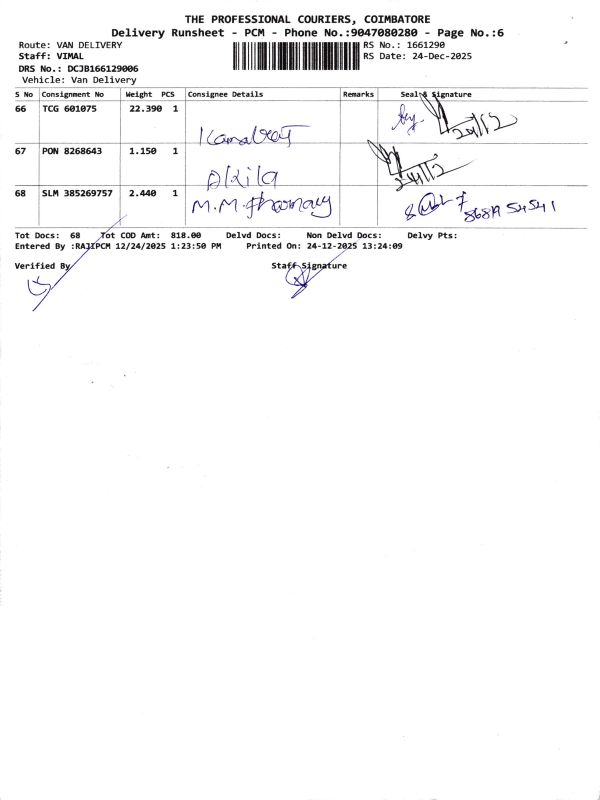 THE PROFESSIONAL COURIERS, COIMBATORE
Delivery Runsheet - PCM - Phone No.:9047080280 - Page No.:6
Route: VAN DELIVERY RS No.: 1661290
Staff: VIMAL RS Date: 24-Dec-2025
DRS No.: DCJB166129006
Vehicle: Van Delivery
S No Consignment No Weight PCS Consignee Details Remarks Seal & Signature
66 TCG 601075 22.390 1
24/12
67 PON 8268643 1.150 1
24/12
Akila
68 SLM 385269757 2.440 1 M.M.Pharmacy
Tot Docs: 68 Tot COD Amt: 818.00 Delvd Docs: Non Delvd Docs: Delvy Pts:
Entered By :RAJIPCM 12/24/2025 1:23:50 PM Printed On: 24-12-2025 13:24:09
Verified By Staff Signature